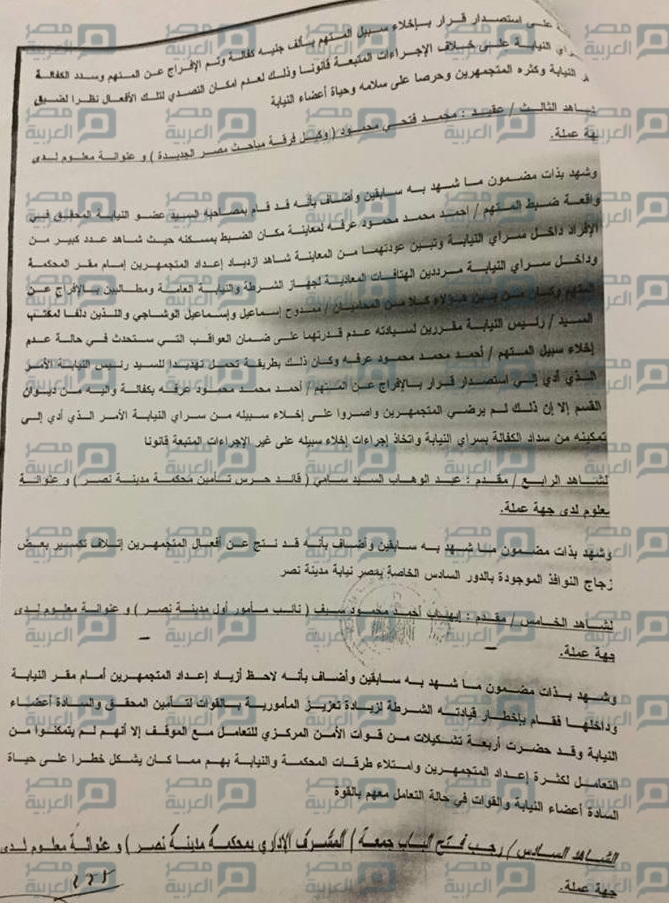 على استصدار قرار بإخلاء سبيل المتهم بألف جنيه كفالة وتم الإفراج عن المتهم وسدد الكفالة
سراي النيابة على خلاف الإجراءات المتبعة قانونا وذلك لعدم امكان التصدي لتلك الأفعال نظرا لضيق
النيابة وكثره المتجمهرين وحرصا على سلامه وحياة أعضاء النيابة
شاهد الثالث / عقيد : محمد فتحي محمود ( وكيل فرقة مباحث مصر الجديدة ) و عنوانة معلوم لدى
جهة عملة.
وشهد بذات مضمون ما شهد به سابقين وأضاف بأنه قد قام بمصاحبه السيد عضو النيابة المحقق في
واقعة ضبط المتهم / احمد محمد محمود عرفه لمعاينة مكان الضبط بمسكنه حيث شاهد عدد كبير من
الأفراد داخل سراي النيابة وتبين عودتهما من المعاينة شاهد ازدياد إعداد المتجمهرين إمام مقر المحكمة
وداخل سراي النيابة مرددين الهتافات المعادية لجهاز الشرطة والنيابة العامة ومطالبين بالإفراج عن
المتهم وكان من بين هؤلاء كلا من المحاميان / ممدوح إسماعيل وإسماعيل الوشاحي واللذين دلفا لمكتب
السيد / رئيس النيابة مقررين لسيادته عدم قدرتهما على ضمان العواقب التي ستحدث في حالة عدم
إخلاء سبيل المتهم / أحمد محمد محمود عرفه وكان ذلك بطريقة تحمل تهديدا للسيد رئيس النيابة الأمر
الذي أدي إلى استصدار قرار بالإفراج عن المتهم / أحمد محمد محمود عرفه بكفالة واليه من ديوان
القسم إلا إن ذلك لم يرضي المتجمهرين واصروا على إخلاء سبيله من سراي النيابة الأمر الذي أدي إلى
تمكينه من سداد الكفالة بسراي النيابة واتخاذ إجراءات إخلاء سبيله على غير الإجراءات المتبعة قانونا
لشاهد الرابع / مقدم : عبد الوهاب السيد سامي ( قائد حرس تأمين محكمة مدينة نصر ) و عنوانة
معلوم لدى جهة عملة.
وشهد بذات مضمون ما شهد به سابقين وأضاف بأنه قد نتج عن أفعال المتجمهرين إتلاف تكسير بعض
زجاج النوافذ الموجودة بالدور السادس الخاصة بمصر نيابة مدينة نصر
لشاهد الخامس / مقدم : إيهاب أحمد محمود سيف ( نائب مأمور أول مدينة نصر ) و عنوانة معلوم لدى
جهة عملة.
وشهد بذات مضمون ما شهد به سابقين وأضاف بأنه لاحظ أزياد إعداد المتجمهرين أمام مقر النيابة
وداخلها فقام بإخطار قيادته الشرطة لزيادة تعزيز المأمورية بالقوات لتأمين المحقق والسادة أعضاء
النيابة وقد حضرت أربعة تشكيلات من قوات الأمن المركزي للتعامل مع الموقف إلا أنهم لم يتمكنوا من
التعامل لكثرة إعداد المتجمهرين وامتلاء طرقات المحكمة والنيابة بهم مما كان يشكل خطرا على حياة
السادة أعضاء النيابة والقوات في حالة التعامل معهم بالقوة
الشاهد السادس / رجب فتح الباب جمعة ( المشرف الإداري بمحكمة مدينة نصر ) و عنوانة معلوم لدى
جهة عملة.
مصر العربية